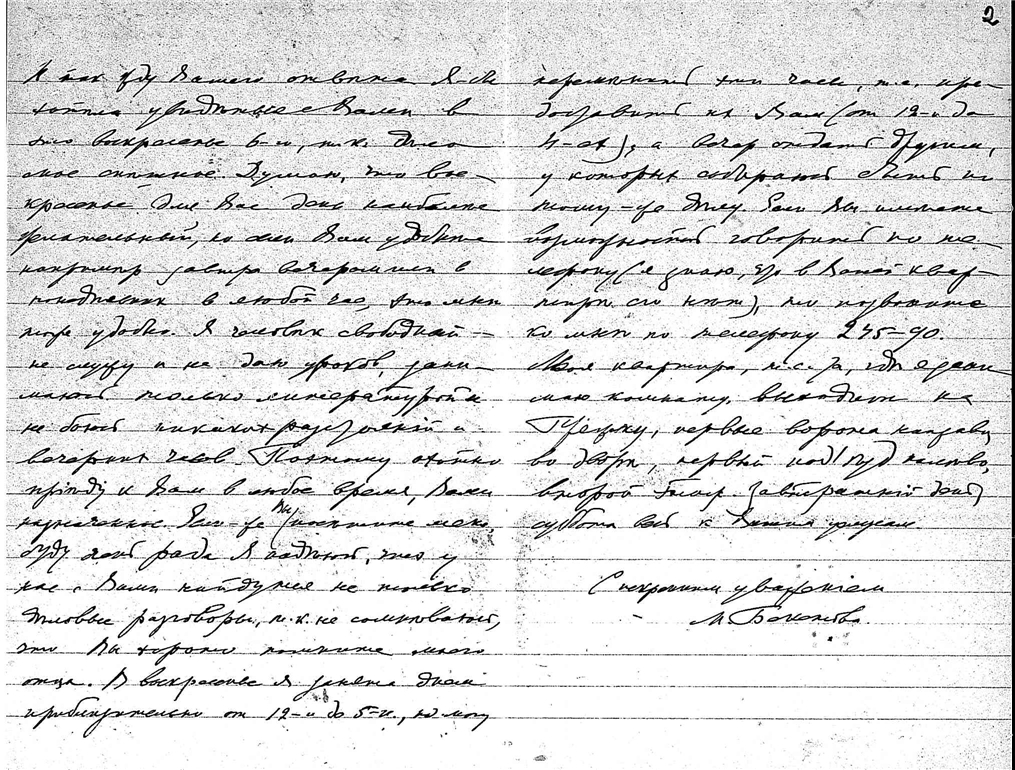 2
И так жду Вашего ответа. Я бы
хотела увидеться с Вами в
это воскресенье 6-го, т.к. дело
мое спешное. Думаю, что вос-
кресенье для Вас день наиболее
желательный, но если Вам удобнее
например завтра вечером или в
понедельник в любой час, это мне
тоже удобно. Я человек свободный —
не служу и не даю уроков, зани-
маюсь только литературой и
не боюсь никаких разстояній и
вечерних часов. Поэтому охотно
пріиду к Вам в любое время, Вами
назначенное. Если-же Вы посетите меня,
буду очень рада. Я надеюсь, что у
нас с Вами найдутся не только
деловые разговоры, т.к. не сомневаюсь,
что Вы хорошо помните моего
отца. В воскресенье я занята днем
приблизительно от 12-и до 5-и, но могу
переменить эти часы, т.е. пре-
доставить их Вам (от 12-и до
4-ех), а вечер отдать другим,
у которых собираюсь быть по
тому-же делу. Если Вы имеете
возможность говорить по те-
лефону (я знаю, что в Вашей квар-
тире его нет), то позвоните
ко мне по телефону 245-90.
Моя квартира, т.е. та, где я сни-
маю комнату, выходит на
первые ворота направо
во дворе, первый подъезд налево,
второй этаж. Завтрашній день
суббота весь к Вашим услугам.
С искренним уваженіем
М.